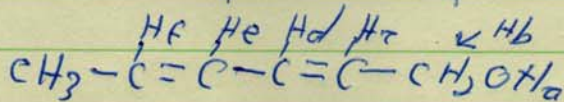 Hf He Hd Hc ↙ Hb
CH3-C=C-C=C-CH2OHa